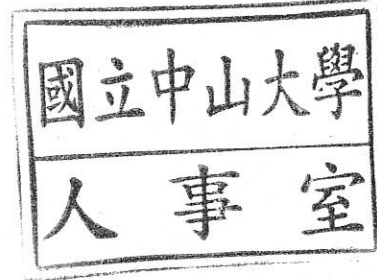 國立中山大學
人事室